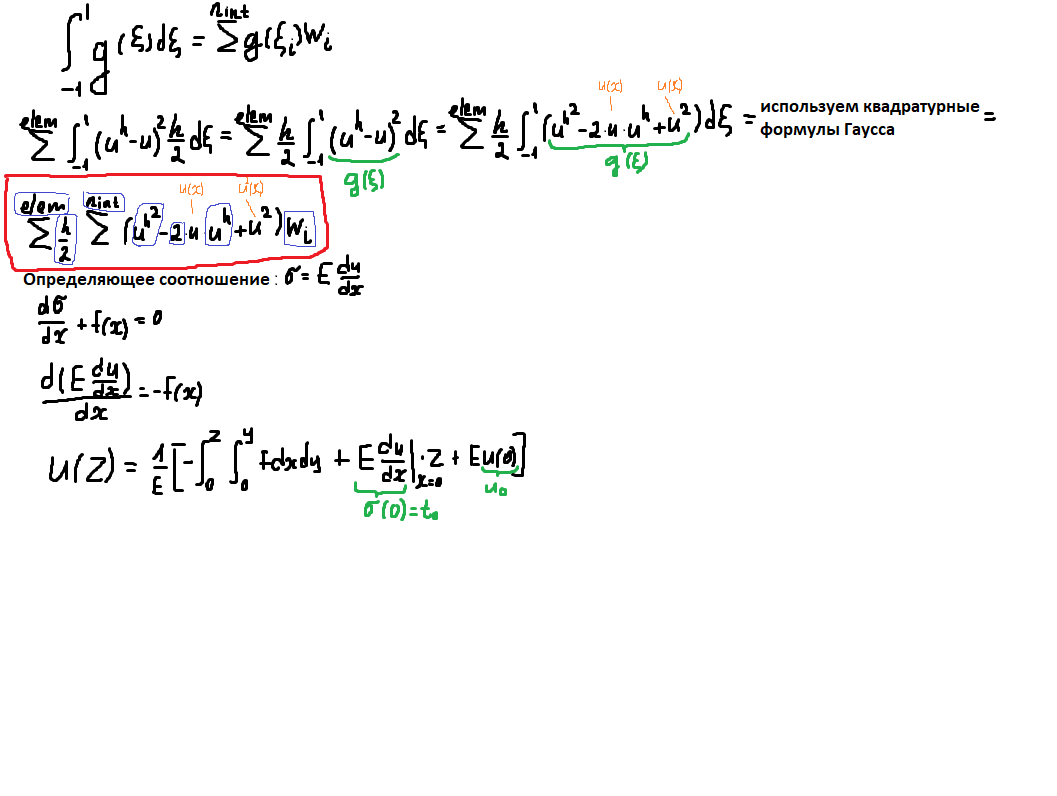 ∫₋₁¹ g(ξ)dξ = Σⁿⁱⁿᵗ g(ξᵢ)Wᵢ
u(x) u(x)
Σᵉˡᵉᵐ ∫₋₁¹ (uʰ-u)² h/2 dξ = Σᵉˡᵉᵐ h/2 ∫₋₁¹ (uʰ-u)² dξ = Σᵉˡᵉᵐ h/2 ∫₋₁¹ (uʰ² - 2·u·uʰ + u²)dξ = используем квадратурные формулы Гаусса =
g(ξ) g(ξ)
u(x) u(x)
Σᵉˡᵉᵐ h/2 Σⁿⁱⁿᵗ (uʰ² - 2·u·uʰ + u²)Wᵢ
Определяющее соотношение : σ = E du/dx
dσ/dx + f(x) = 0
d(E du/dx)/dx = -f(x)
u(z) = 1/E [-∫₀ᶻ ∫₀ʸ f dx dy + E du/dx|ₓ₌₀ · z + E u(0)]
σ(0) = t₀ u₀